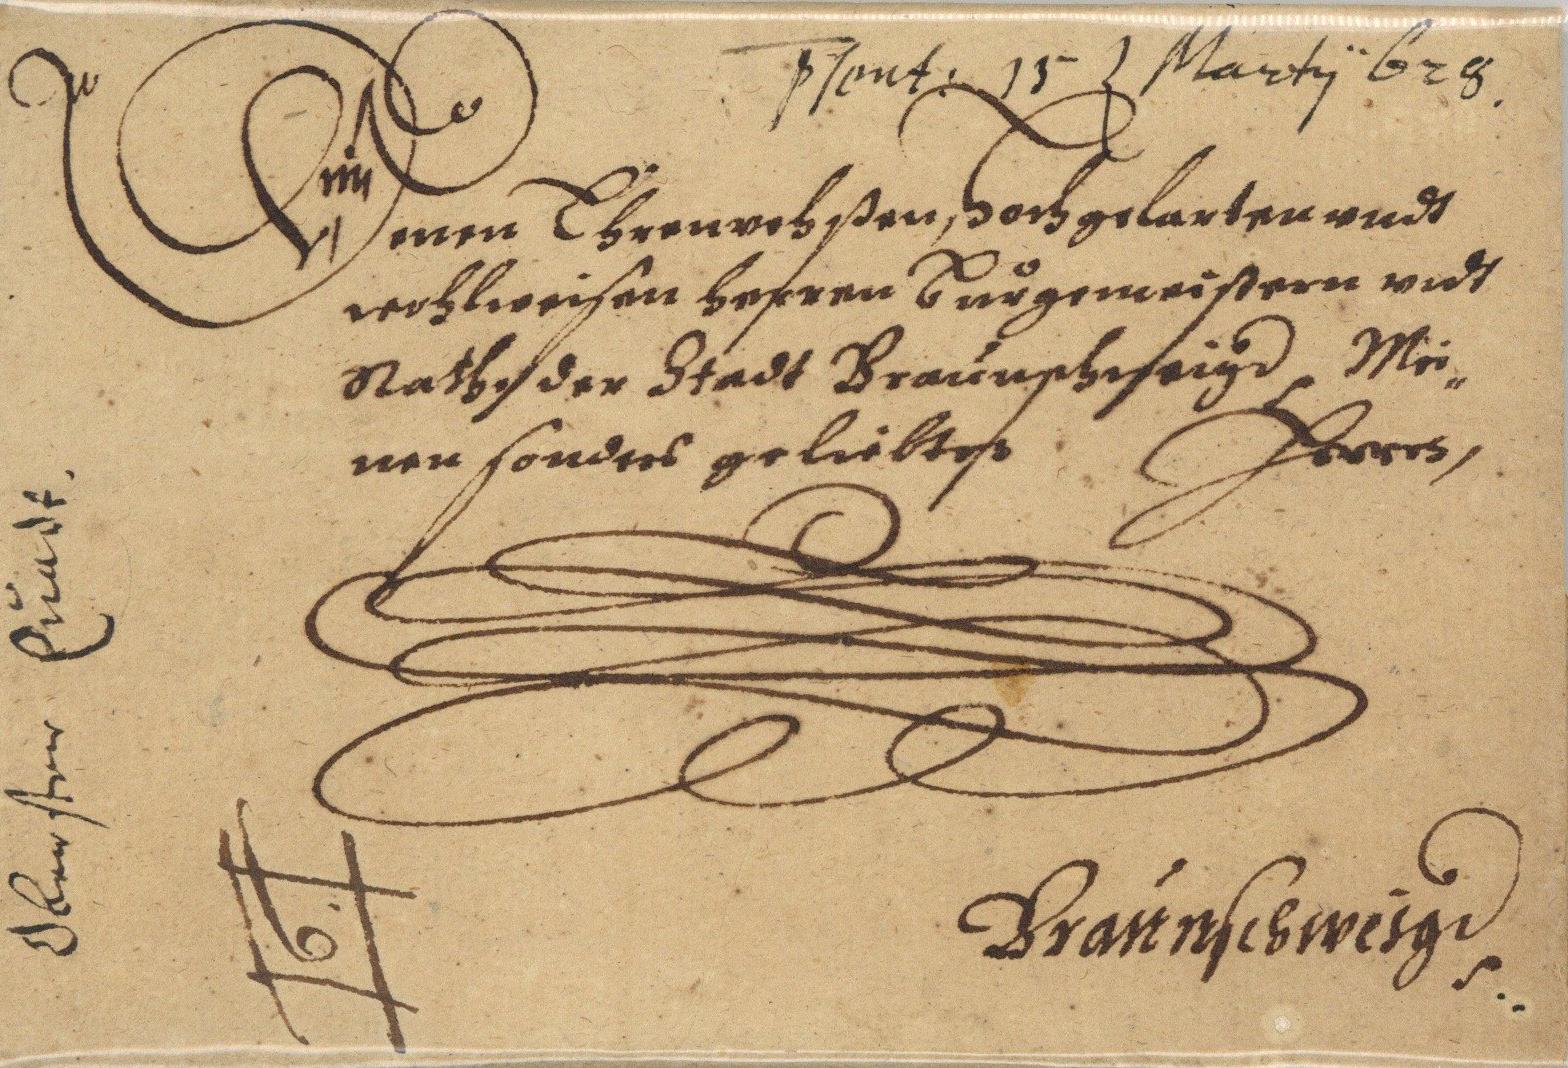 Psent. 15 Martÿ 628.
Denen Ehrenvehsten, Hochgelarten vndt
wohlweisen herren Bürgemeistern vndt
Rathe der Stadt Braunschweigd, Mei„
nen sonders geliebten Herren,
Braunschweigd
Obrister
16